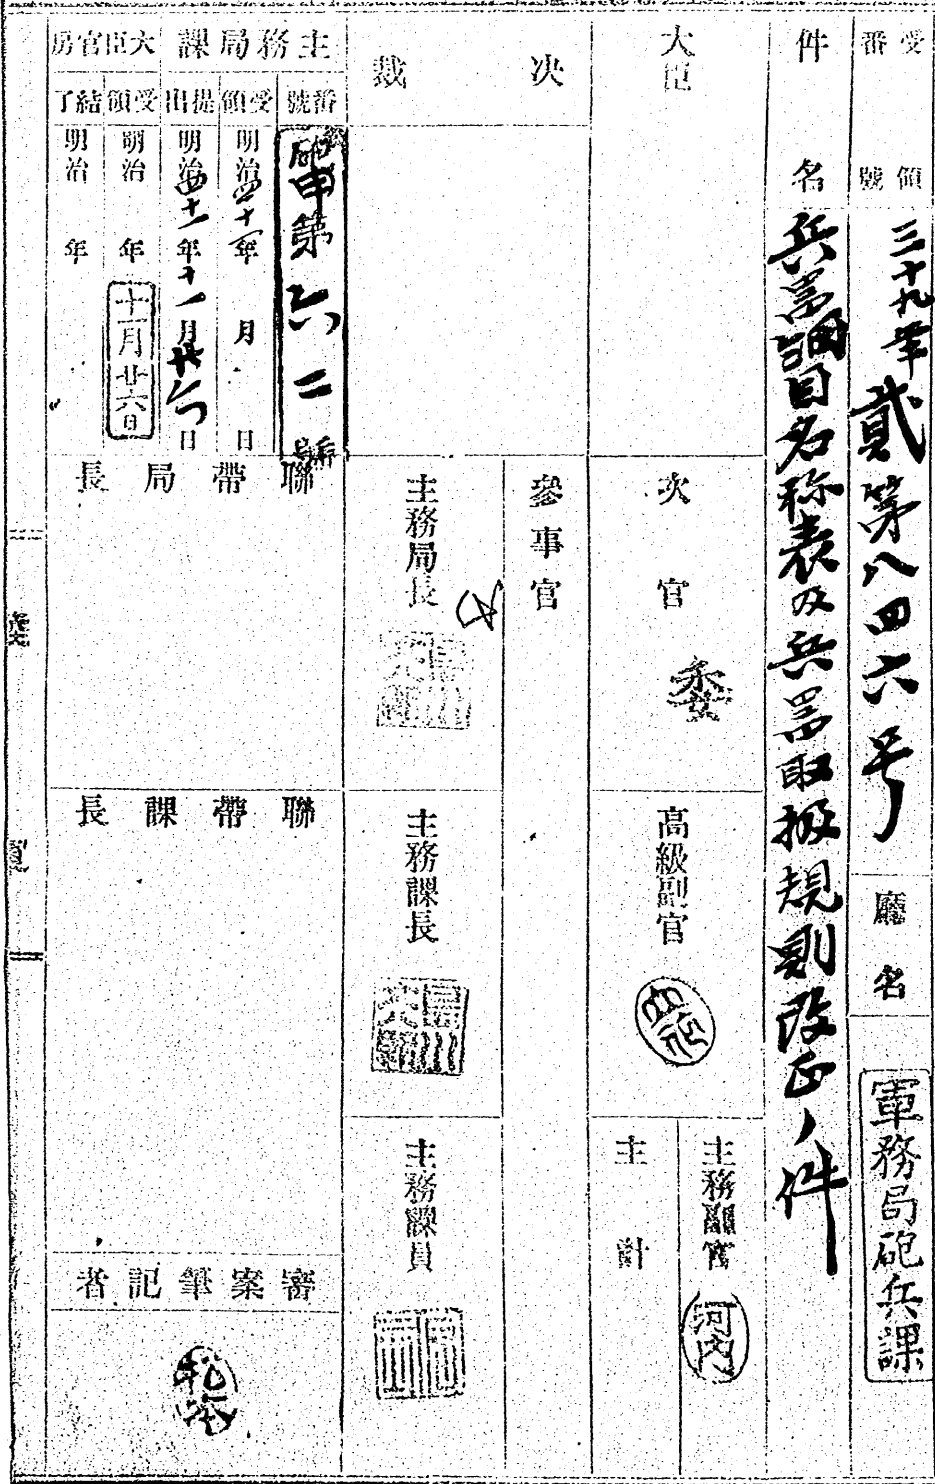 受領番號
三十九年貳第八四六号
廳名
軍務局砲兵課
件名
兵器細目名称表及兵器取扱規則改正ノ件
大臣
次官
委
高級副官
主務副官
河内
主計
決裁
參事官
主務局長
主務課長
主務課員
主務局課
番號
砲甲第六二號
受領
明治四十一年 月 日
提出
明治四十一年十一月廿六日
大臣官房
受領
明治 年
十一月廿六日
結了
明治 年
聯帶局長
聯帶課長
審案筆記者